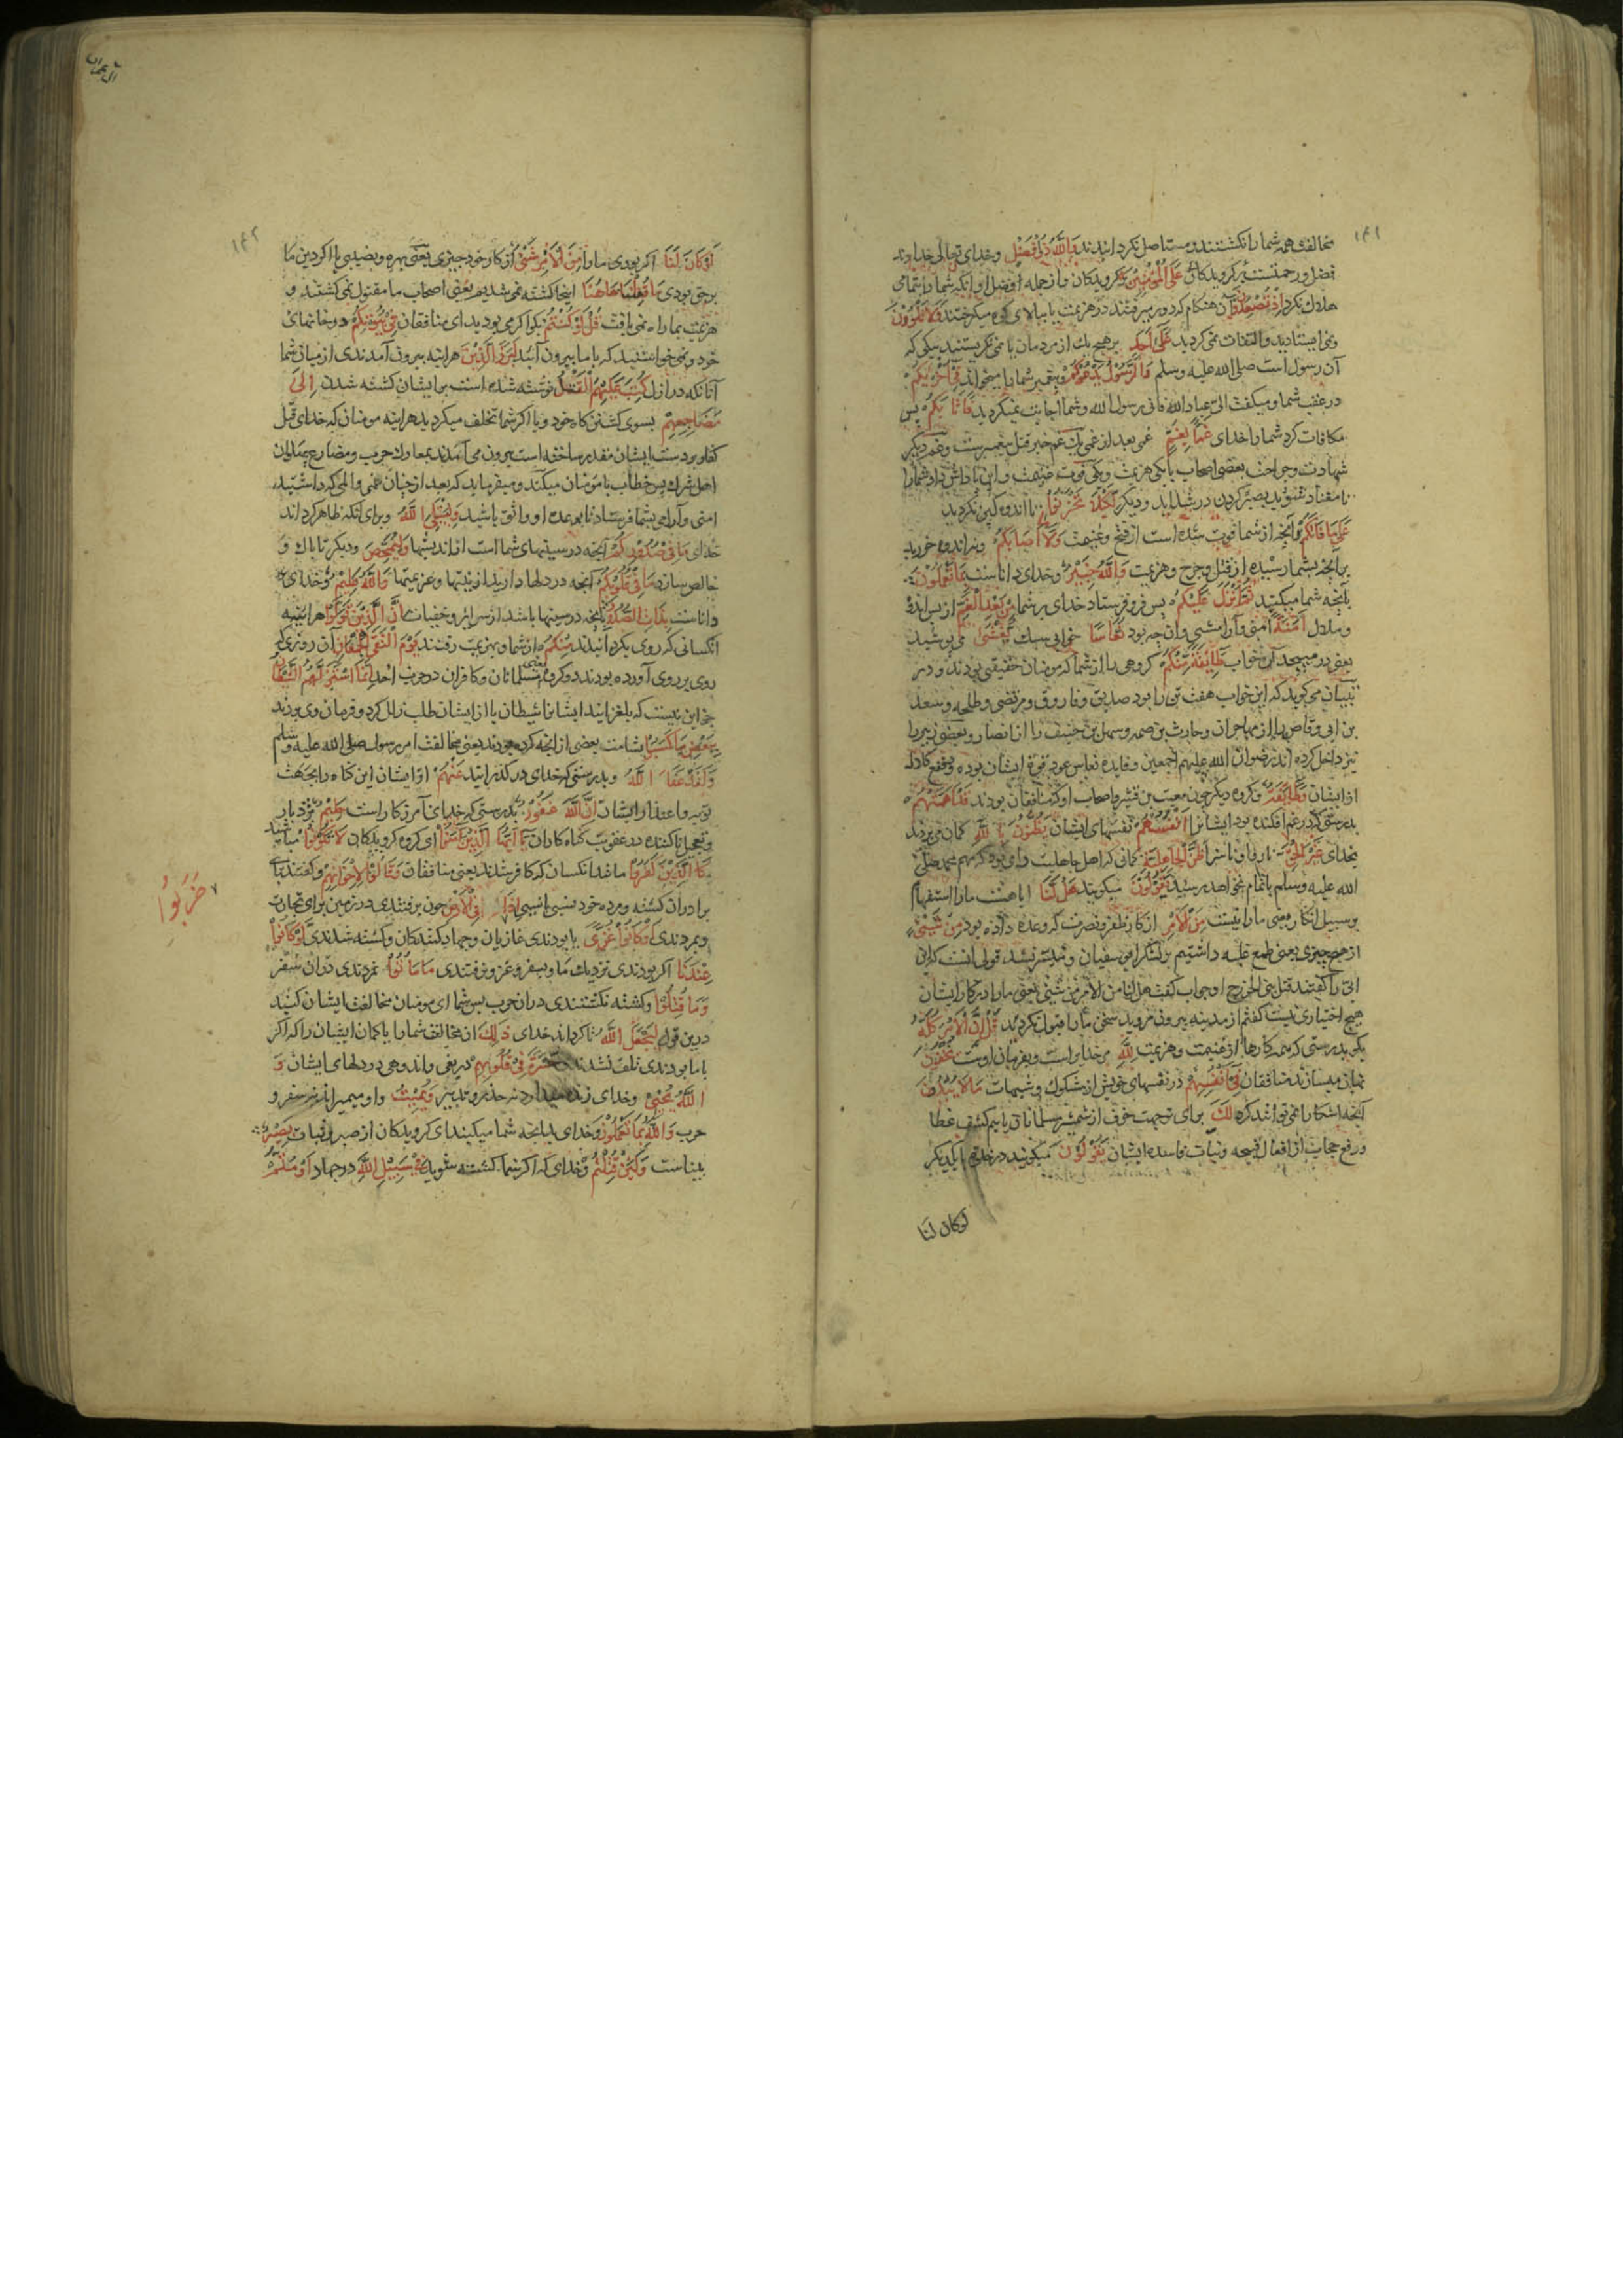 ۱۴۱
مخالفت همه شما را نکشتند و مستاصل نکردانیدند وَاللّٰهُ ذُو فَضْلٍ وخدای تعالی خداوند
فضل ورحمتست بر کرویدکان عَلَی الْمُؤْمِنِیْنَ بر کرویدکان واز جمله افضل او انکه شما را بتمامی
هلاک نکرد اِذْ تُصْعِدُوْنَ آن هنکام که دور میرفتند در هزیمت یا ببالای کوه میکریختند وَلَا تَلْوٗنَ
ونمی ایستادید والتفات نمی کردید عَلٰی اَحَدٍ بر هیچ یک از مردمان یا نمی نکریستند بیکی که
آن رسول است صلی الله علیه وسلم وَالرَّسُوْلُ یَدْعُوْکُمْ وپیغمبر شما را میخواند فِیْ اُخْرٰیکُمْ
در عقب شما ومیکفت الیّ عباد الله فانی رسول الله وشما اجابت نمیکردید فَاَثَابَکُمْ پس
مکافات کرد شما را خدای غَمًّا بِغَمٍّ غمی بعد از غمی یک غم خبر قتل پیغمبرست وغم دیکر
شهادت وجراحت بعضی اصحاب یا یکی هزیمت ویکی فوت غنیمت واین پاداش داد شما را
تا معتاد شوید بصبر کردن در شداید ودیکر لِکَیْلَا تَحْزَنُوْا تا اندوهکین نکردید
عَلٰی مَا فَاتَکُمْ بر آنچه از شما فوت شده است از فتح وغنیمت وَلَا مَا اَصَابَکُمْ ونه اندوه خورید
برانچه بشما رسیده از قتل وجرح وهزیمت وَاللّٰهُ خَبِیْرٌ وخدای داناست بِمَا تَعْمَلُوْنَ
بآنچه شما میکنید ثُمَّ اَنْزَلَ عَلَیْکُمْ پس فرو فرستاد خدای بر شما مِنْ بَعْدِ الْغَمِّ از پس اندوه
وملال اَمَنَةً امنی وآرامشی وان چه بود نُعَاسًا خوابی سبک یَغْشٰی می پوشید
یعنی در میبچید آن خواب طَآئِفَةً مِّنْکُمْ کروهی را از شما که مومنان حقیقی بودند ودر
تبیان می کوید که این خواب هفت تن را بود صدیق وفاروق ومرتضی وطلحه وسعد
بن ابی وقاص را از مهاجران وحارث بن صمه وسهل بن حنیف را از انصار وبعضی زبیر را
نیز داخل کرده اند رضوان الله علیهم اجمعین وفایده نعاس عود قوة ایشان بوده
از ایشان وَطَآئِفَةٌ وکروه دیکر چون معتب بن قشیر واصحاب او که منافقان بودند قَدْ اَهَمَّتْهُمْ
بدرستی که در غم افکنده بود ایشانرا اَنْفُسُهُمْ نفسهای ایشان یَظُنُّوْنَ بِاللّٰهِ کمان می بردند
بخدای غَیْرَ الْحَقِّ ناروا وناسزا ظَنَّ الْجَاهِلِیَّةِ کمانی که اهل جاهلیت
الله علیه وسلم باتمام نخواهد رسید یَقُوْلُوْنَ میکویند هَلْ لَّنَا ایا هست ما را استفهام
بر سبیل انکار یعنی ما را نیست مِنَ الْاَمْرِ از کار ظفر ونصرت که وعده داده بود مِنْ شَیْءٍ
از هیچ چیزی یعنی طمع غلبه داشتیم بر لشکر ابو سفیان ومیسر نشد قولی انست که ابن
ابی را کفتند قتل بنی الخزرج او جواب کفت هل لنا من الامر من شیء یعنی ما را در کار ایشان
هیچ اختیاری نیست کفتم از مدینه بیرون مروید سخن ما را قبول نکردند قُلْ اِنَّ الْاَمْرَ کُلَّهٗ
بکو بدرستی که همه کارها از غنیمت وهزیمت لِلّٰهِ مر خدایراست وبفرمان اوست یُخْفُوْنَ
نهان میسازند منافقان فِیْ اَنْفُسِهِمْ در نفسهای خویش از شکوک وشبهات مَا لَا یُبْدُوْنَ
آنچه اشکارا نمی توانند کرد لَکَ برای تو جهت خوف از شمشیر مسلمانان یا بیم کشف غطا
ورفع حجاب از افعال قبیحه ونیات فاسده ایشان یَقُوْلُوْنَ میکویند در خلوتها با یکدیکر
لوکان لنا
ال عمران
۱۴۲
لَوْ کَانَ لَنَا اکر بودی ما را مِنَ الْاَمْرِ شَیْءٌ از کار خود چیزی یعنی بهره ونصیبی یا اکر دین ما
بر حق بودی مَا قُتِلْنَا هَاهُنَا اینجا کشته نمی شدیم یعنی اصحاب ما مقتول نمی کشتند و
هزیمت بما راه نمی یافت قُلْ لَوْ کُنْتُمْ بکو اکر می بودید ای منافقان فِیْ بُیُوْتِکُمْ در خانهای
خود ونمی خواستید که با ما بیرون آئید لَبَرَزَ الَّذِیْنَ هراینه بیرون آمدندی از میان شما
آنانکه در ازل کُتِبَ عَلَیْهِمُ الْقَتْلُ نوشته شده است بر ایشان کشته شدن اِلٰی
مَضَاجِعِهِمْ بسوی کشتن کاه خود ویا اکر شما تخلف میکردید هراینه مومنان که خدای قتل
کفار بر دست ایشان مقدر ساخته است بیرون می آمدند بمعارک حرب ومضارع
اهل شرک پس خطاب با مومنان میکند ومیفرماید که بعد از چنان غمی والمی که داشتید
امنی وآرامی بشما فرستاد تا بوعده او واثق باشید وَلِیَبْتَلِیَ اللّٰهُ وبرای آنکه ظاهر کرداند
خدای مَا فِیْ صُدُوْرِکُمْ آنچه در سینهای شما است از اندیشها وَلِیُمَحِّصَ ودیکر تا پاک و
خالص سازد مَا فِیْ قُلُوْبِکُمْ آنچه در دلها دارید از نیتها وعزیمتها وَاللّٰهُ عَلِیْمٌ وخدای
داناست بِذَاتِ الصُّدُوْرِ بآنچه در سینها باشد از سرایر وخفیات اِنَّ الَّذِیْنَ تَوَلَّوْا هراینه
انکسانی که روی بکردانیدند مِنْکُمْ از شما وبهزیمت رفتند یَوْمَ الْتَقَی الْجَمْعَانِ آن روزی که
روی بر روی آورده بودند دو کروه یعنی مسلمانان وکافران در حرب احد اِنَّمَا اسْتَزَلَّهُمُ الشَّیْطٰنُ
جز این نیست که بلغزانید ایشانرا شیطان یا از ایشان طلب زلل کرد وفرمان وی بردند
بِبَعْضِ مَا کَسَبُوْا بشامت بعضی از آنچه کرده بودند یعنی مخالفت امر رسول صلی الله علیه وسلم
وَلَقَدْ عَفَا اللّٰهُ وبدرستی که خدای در کذرانید عَنْهُمْ از ایشان این کناه را بجهت
توبه واعتذار ایشان اِنَّ اللّٰهَ غَفُوْرٌ بدرستی که خدای آمرزکار است حَلِیْمٌ بردبار
وتعجیل ناکننده در عقوبت کناه کاران یٰٓاَیُّهَا الَّذِیْنَ اٰمَنُوْا ای کروه کرویدکان لَا تَکُوْنُوْا مباشید
کَالَّذِیْنَ کَفَرُوْا مانند انکسان که کافر شدند یعنی منافقان وَقَالُوْا لِاِخْوَانِهِمْ وکفتند برای
برادران کشته ومرده خود اِذَا ضَرَبُوْا فِی الْاَرْضِ چون برفتندی در زمین برای تجارت
وبمردندی اَوْ کَانُوْا غُزًّی یا بودندی غازیان وجهاد کنندکان وکشته شدندی لَوْ کَانُوْا
عِنْدَنَا اکر بودندی نزدیک ما وبسفر وغزو نرفتندی مَا مَاتُوْا نمردندی دران سفر
وَمَا قُتِلُوْا وکشته نکشتندی دران حرب پس شما ای مومنان مخالفت ایشان کنید
درین قول لِیَجْعَلَ اللّٰهُ تا کرداند خدای ذٰلِکَ این مخالفت شما را یا کمان ایشان را که اکر
با ما بودندی تلف نشدندی حَسْرَةً فِیْ قُلُوْبِهِمْ دریغی واندوهی در دلهای ایشان وَ
اللّٰهُ یُحْیِیْ وخدای زنده میدارد نه حذر وتدبیر وَیُمِیْتُ واو میمیراند نه سفر و
حرب وَاللّٰهُ بِمَا تَعْمَلُوْنَ وخدای بدانچه شما میکنید ای کرویدکان از صبر وثبات بَصِیْرٌ
بیناست وَلَئِنْ قُتِلْتُمْ وخدای که اکر شما کشته شوید فِیْ سَبِیْلِ اللّٰهِ در جهاد اَوْ مُتُّمْ
ضَرَبُوْا